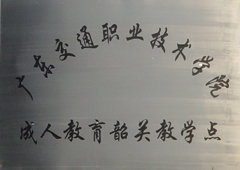 广东交通职业技术学院
成人教育韶关教学点